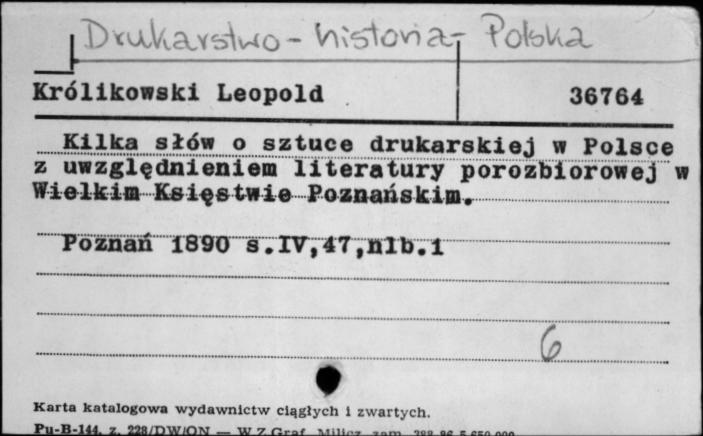 Drukarstwo - historia - Polska
Królikowski Leopold 36764
Kilka słów o sztuce drukarskiej w Polsce
z uwzględnieniem literatury porozbiorowej w
Wielkim Księstwie Poznańskim.
Poznań 1890 s.IV,47,nlb.1
6
Karta katalogowa wydawnictw ciągłych i zwartych.
Pu-B-144, z. 228/DW/ON — W Z Graf. Milicz zam.